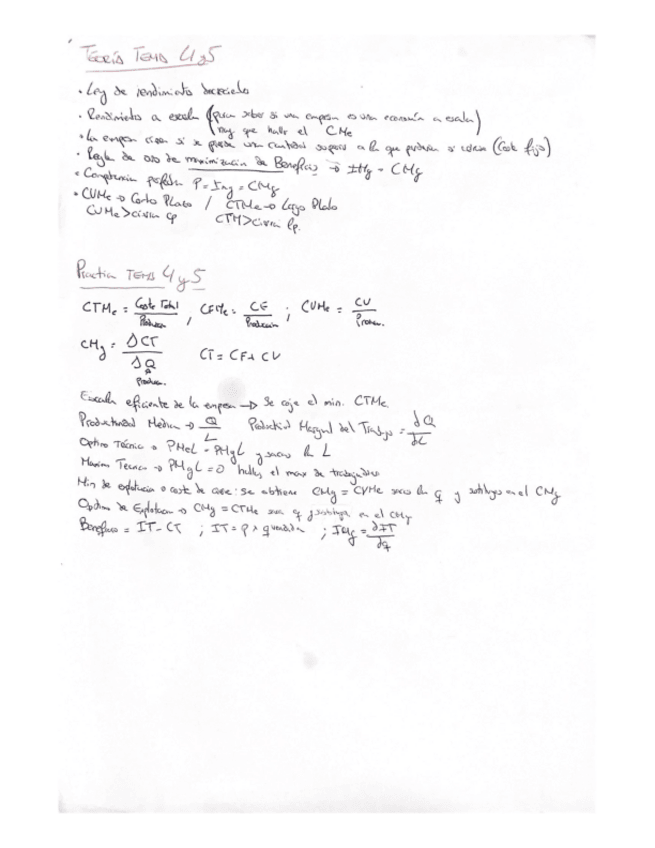 TEORÍA TEMA 4 y 5
• Ley de rendimiento decreciente
• Rendimiento a escala (para saber si una empresa es una economía a escala)
hay que hallar el CMe
• La empresa cierra si se pierde una cantidad superior a la que perdería si cierra (Coste fijo)
• Regla de oro de maximización de Beneficio → IMg = CMg
• Competencia perfecta P = Ing = CMg
• CVMe → Corto Plazo / CTMe → Largo Plazo
CVMe > cierra cp CTM > cierra lp.
Practica TEMA 4 y 5
CTMe = Coste Total / Produccion , CFMe = CF / Produccion ; CVMe = CV / Producc.
CMg = ΔCT / ΔQ CT = CF + CV
Producc.
Escala eficiente de la empresa → Se coje el min. CTMe
Productividad Media → Q / L Productivid Marginal del Trabajo = dQ / dL
Optimo Técnico → PMeL = PMgL y sacas la L
Maximo Tecnico → PMgL = 0 hallas el max de trabajadores
Min de explotación o coste de cierre: se obtiene CMg = CVMe sacas la q y sustituyes en el CMg
Optimo de Explotacion → CMg = CTMe sacas q y sustituyes en el CMg
Beneficio = IT - CT ; IT = p × q vendida ; IMg = ∂IT / ∂q